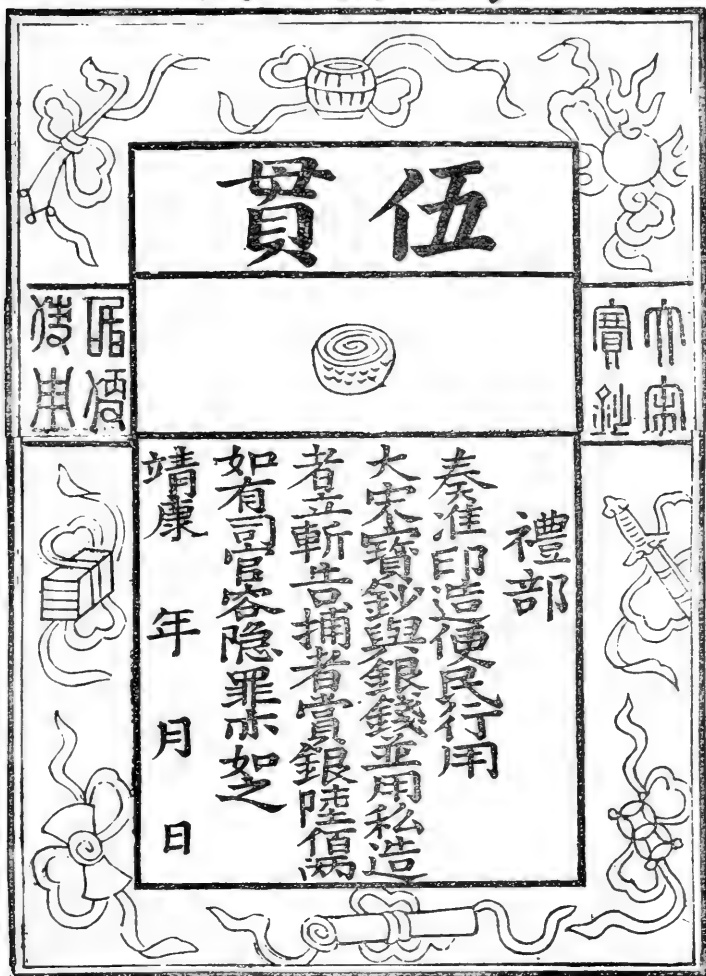 伍貫
大宋
寶鈔
居民
使用
禮部
奏准印造便民行用
大宋寶鈔與銀錢並用私造
者立斬告捕者賞銀陸佰兩
如有司官容隐罪亦如之
靖康 年 月 日